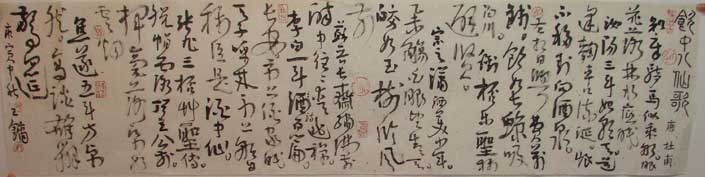 飲中八仙歌
唐 杜甫
知章騎馬似乘船眼
花落井水底眠
汝陽三斗始朝天道
逢麴車口流涎恨
不移封向酒泉
左相日興費萬
錢飲如長鯨吸
百川銜杯樂聖稱
避賢
宗之瀟洒美少年
舉觴白眼望青天
皎如玉樹臨風
前
蘇晉長齋繡佛前
醉中往往愛逃禪
李白一斗詩百篇
長安市上酒家眠
天子呼來不上船自
稱臣是酒中仙
張旭三杯草聖傳
脫帽露頂王公前
揮毫落紙如
雲煙
焦遂五斗方卓
然高談雄辯
驚四筵
庚寅中秋